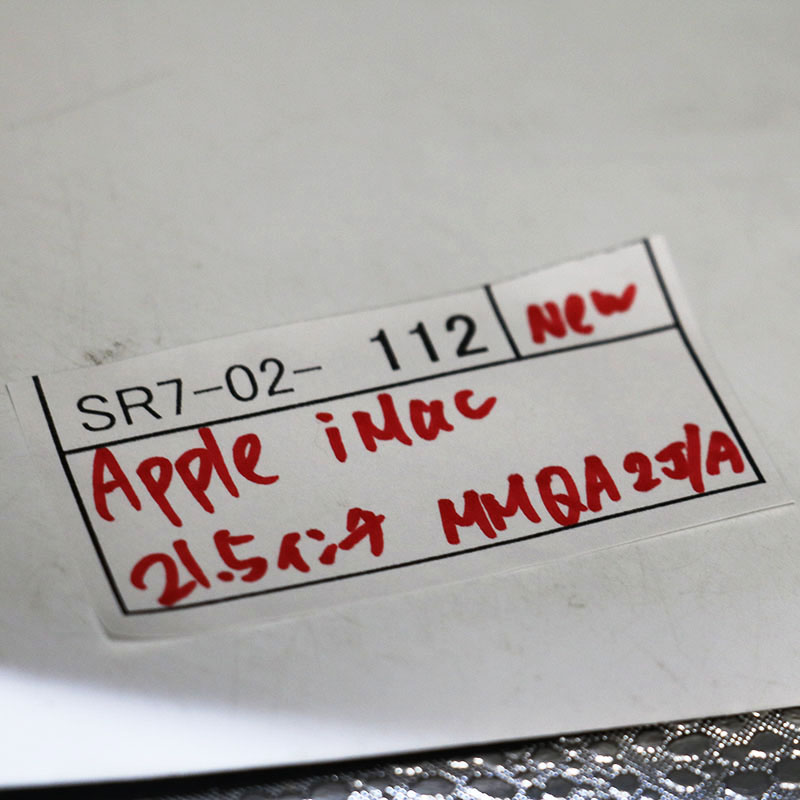 SR7-02- 112 New
Apple iMac
21.5インチ MMQA2J/A